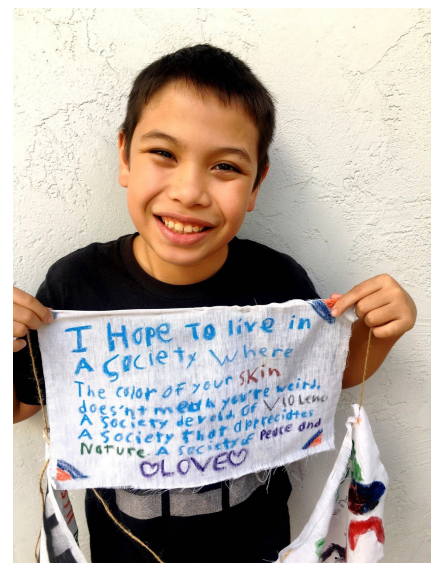 I HOPE TO live in
A Society Where
The color of your skin
does'nt mean you're weird.
A society devoid of Violence
A society that appreciates
Nature. A society of Peace and
♡LOVE♡